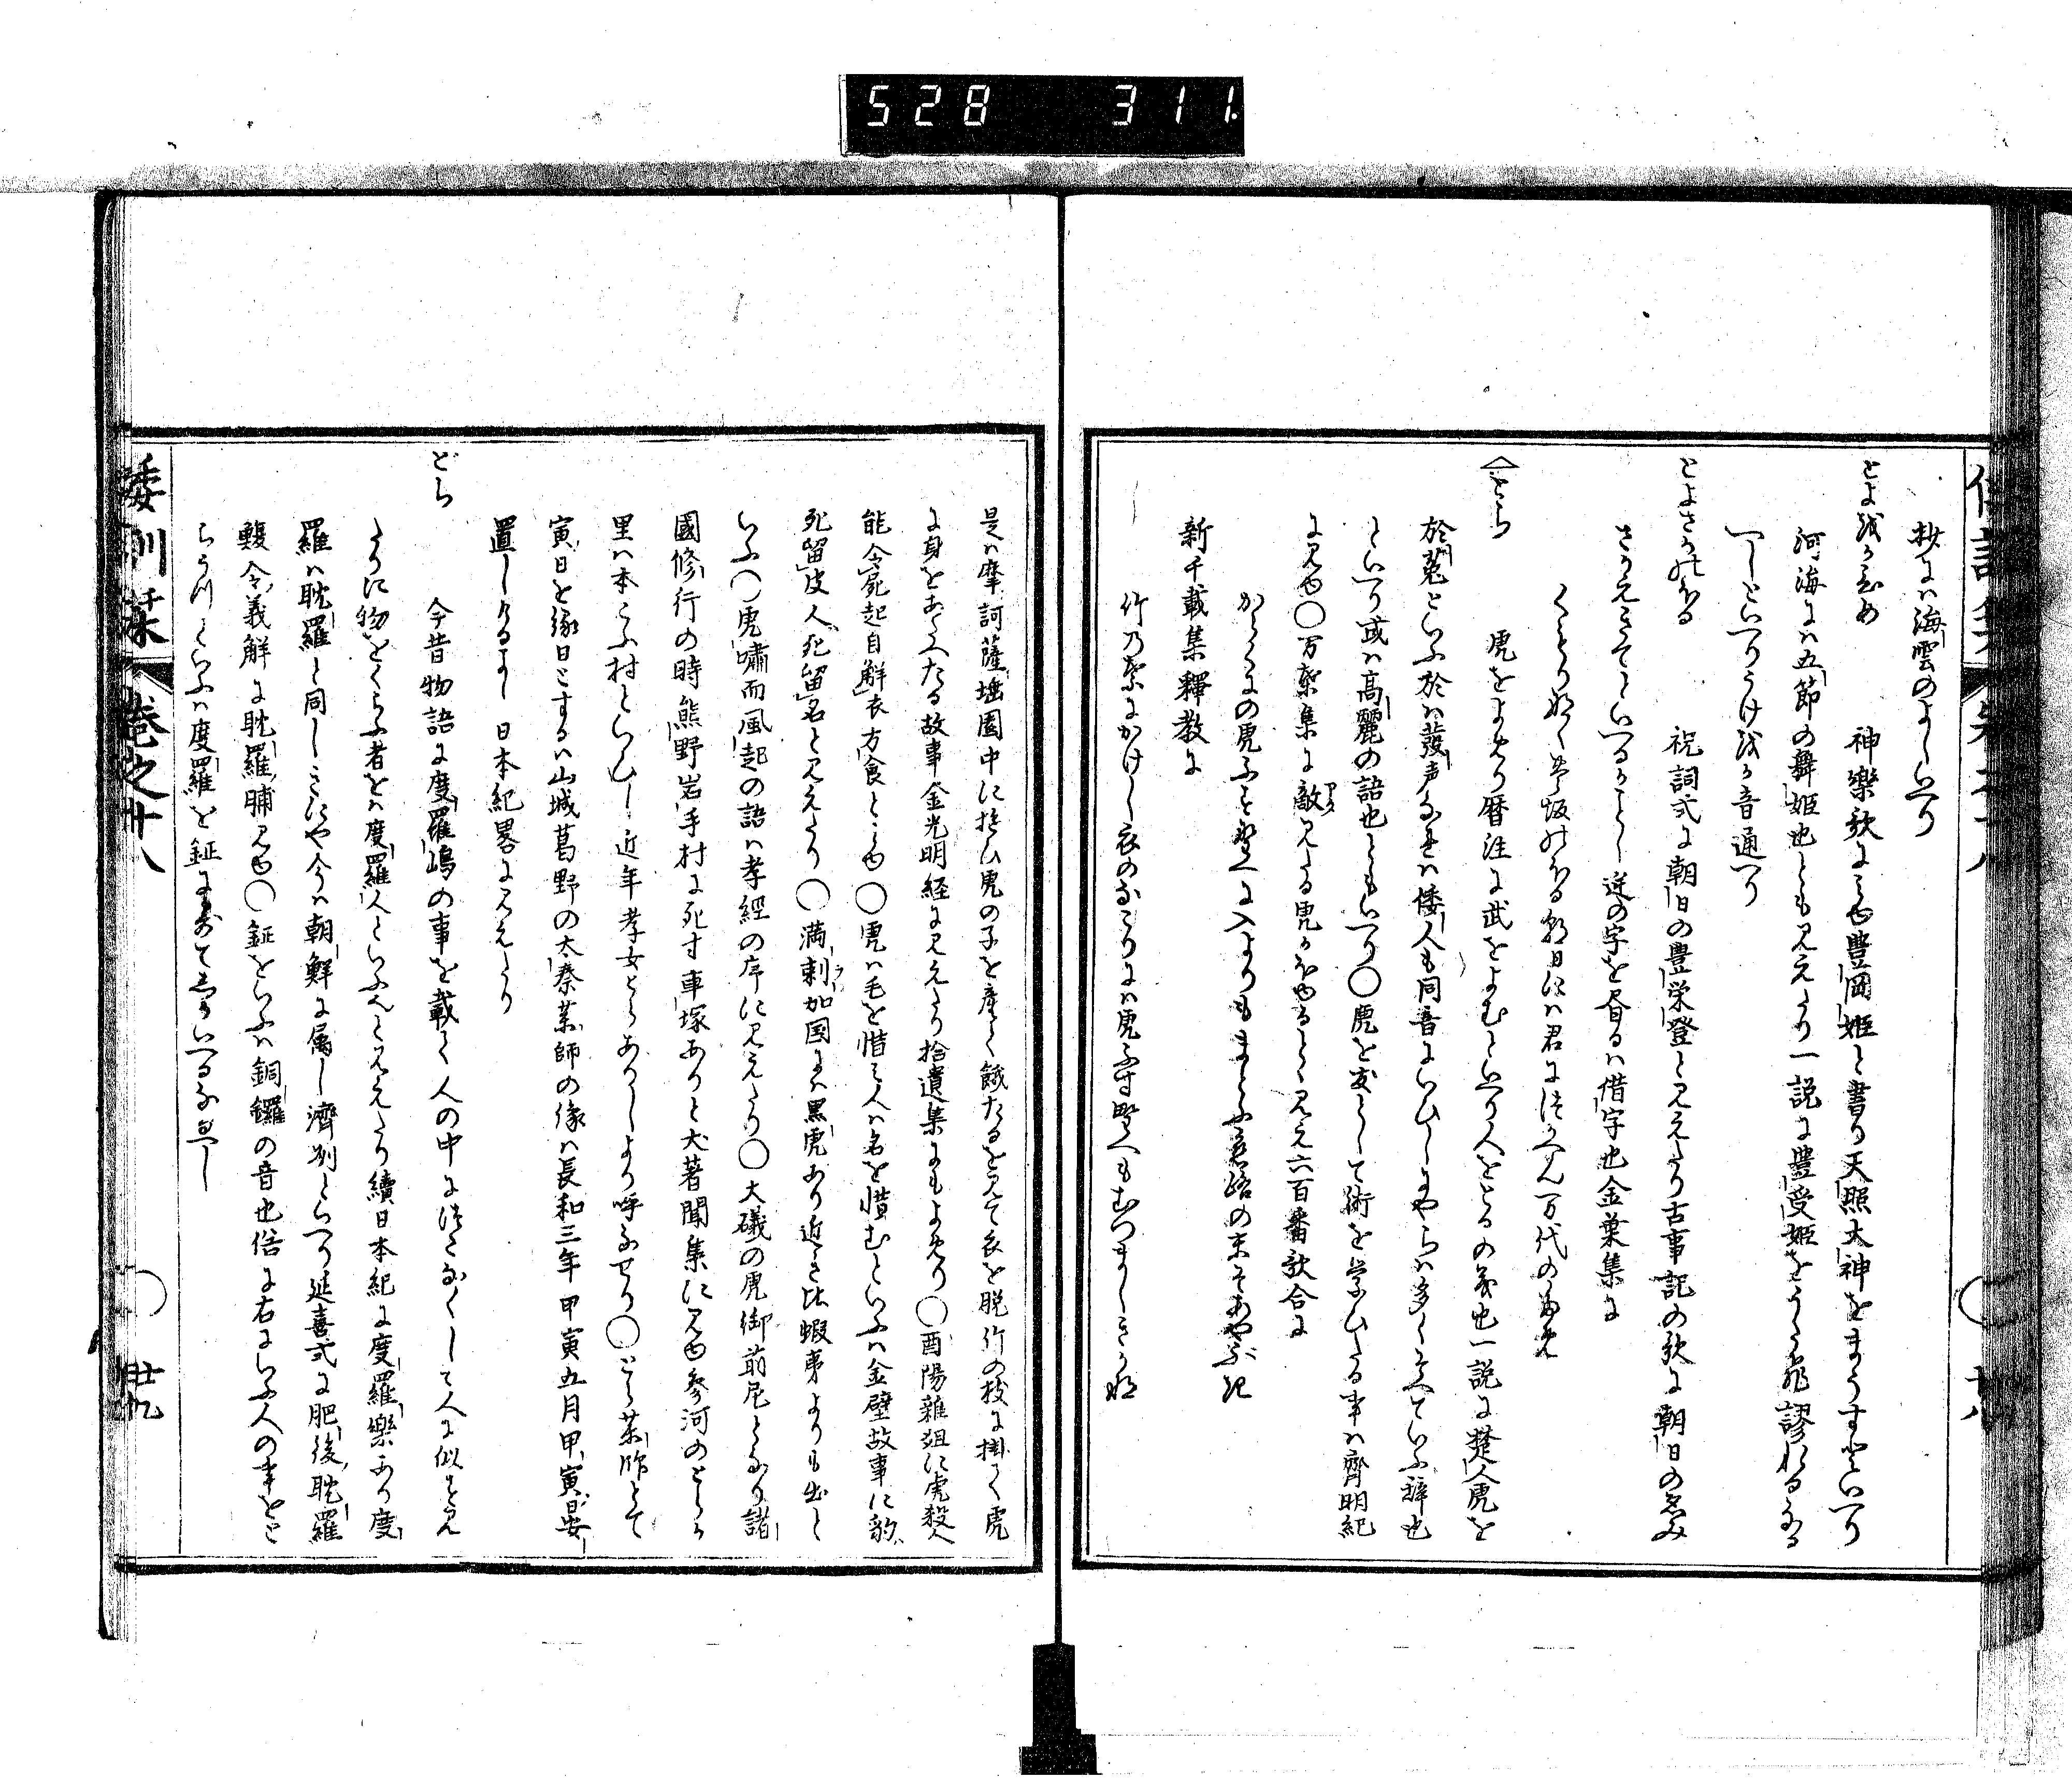 528 311.
抄には海雲のよしいへり
とよをかひめ 神樂歌にみゆ豊岡姫と書り天照大神をまうすといへり
河海には五節の舞姫也とも見えたり一説に豊受姫をよめり
謬れるなるへしといへりうけをか音通へり
とよさかのほる 祝詞式に朝日の豊栄登と見えたり古事記の歌に朝日のゑみ
さかえきてといへるかことし逆の字を昏るは借字也金葉集に
くもりなく豊坂のほる朝日には君につかへん万代のため
とら 虎をよめり暦注に武をよむといへり人をとるの義也一説に楚人虎を
於菟といふ於は發声なれは倭人も同音にいひしにやらは多くそへていふ辞也
といへり或は高麗の語也ともいへり〇虎を友として術を学ひたる事は齊明紀
に見ゆ〇万葉集に敵見たる虎かほゆると見え六百番歌合に
からくにの虎ふす野へに入よりもまとふ恋路の末そあやふき
新千載集釋教に
竹乃葉にかけし衣のなこりには虎ふす野へもむつましきかな
是は摩訶薩埵園中に遊ひ虎の子を産て餓たるを見て衣を脱竹の枝に掛て虎
に身をあたへたる故事金光明経に見えたり拾遺集にもよめり〇酉陽雜俎に虎殺人
能令屍起自解衣方食とみゆ〇虎は毛を惜み人は名を惜むといふは金壁故事に豹
死留皮人死留名と見えたり〇満剌加国には黒虎あり近き比蝦夷よりも出しと
いふ〇虎嘯而風起の語は孝經の序に見えたり〇大礒の虎御前尼となり諸
國修行の時熊野岩手村に死す車塚ありと犬著聞集に見ゆ參河のとらか
里は本こふ村といひし近年孝女とらありしより呼なせり〇とら薬師とて
寅日を縁日とするは山城葛野の太秦薬師の像は長和三年甲寅五月甲寅日安
置しけるよし日本紀畧に見えたり
どら 今昔物語に度羅嶋の事を載て人の中につゝみなくして人に似すえ
たりに物をくらふ者をは度羅人といふへしと見えたり續日本紀に度羅樂あり度
羅は耽羅と同しきにや今は朝鮮に属し濟州といへり延喜式に肥後耽羅
鰒令義解に耽羅脯見ゆ〇鉦をいふは銅鑼の音也俗に右にいふ人の事をと
らうつといふは度羅を鉦にまかせてしかいへるなるへし
倭訓栞 巻之廿八
廿九